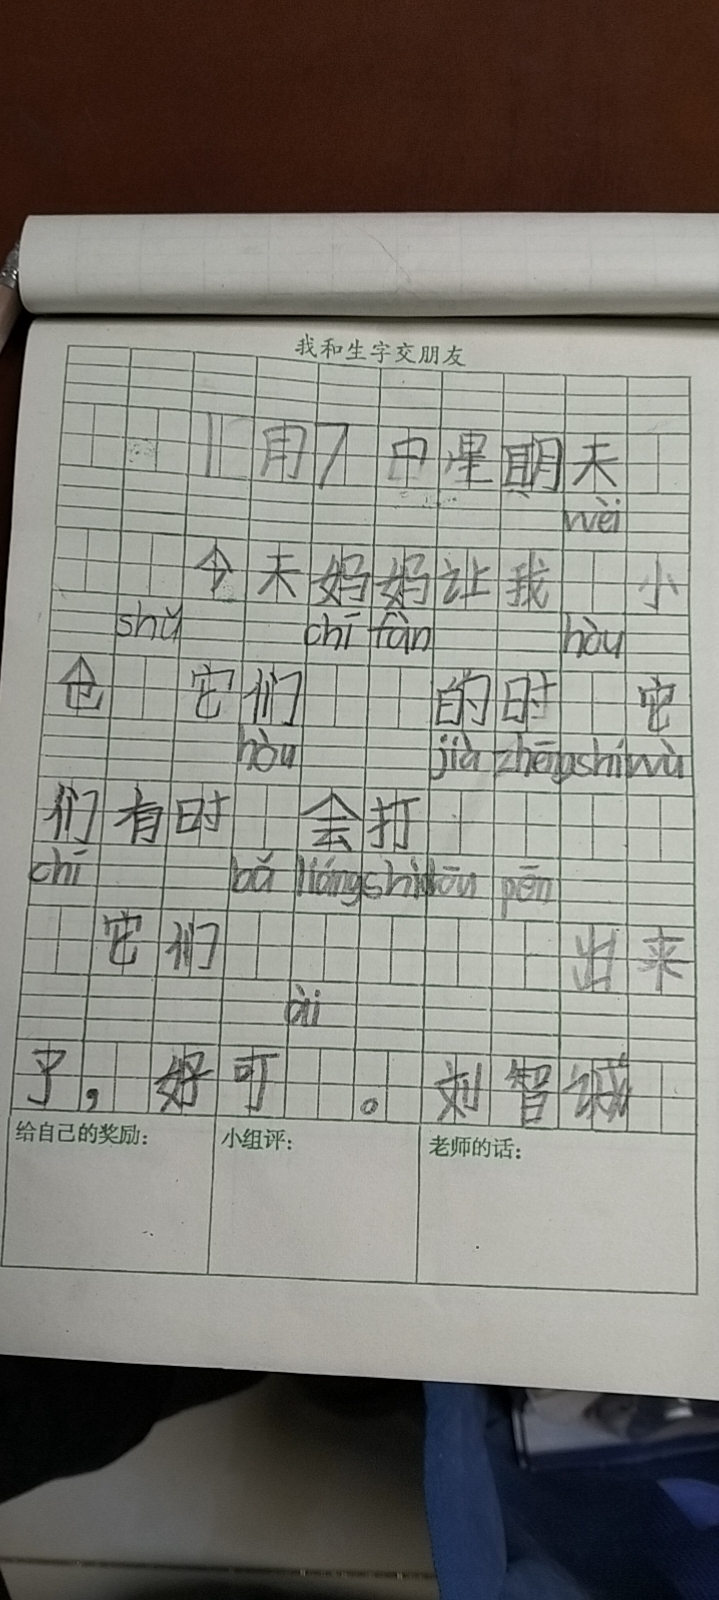 我和生字交朋友
1月7日星期天
wèi
今天妈妈让我 小
shǔ chī fàn hòu
仓 它们 的时 它
hòu jià zhēng shí wù
们有时 会打
chī bǎ liáng shi dōu pēn
它们 出来
ài
了，好可 。刘智诚
给自己的奖励： 小组评： 老师的话：